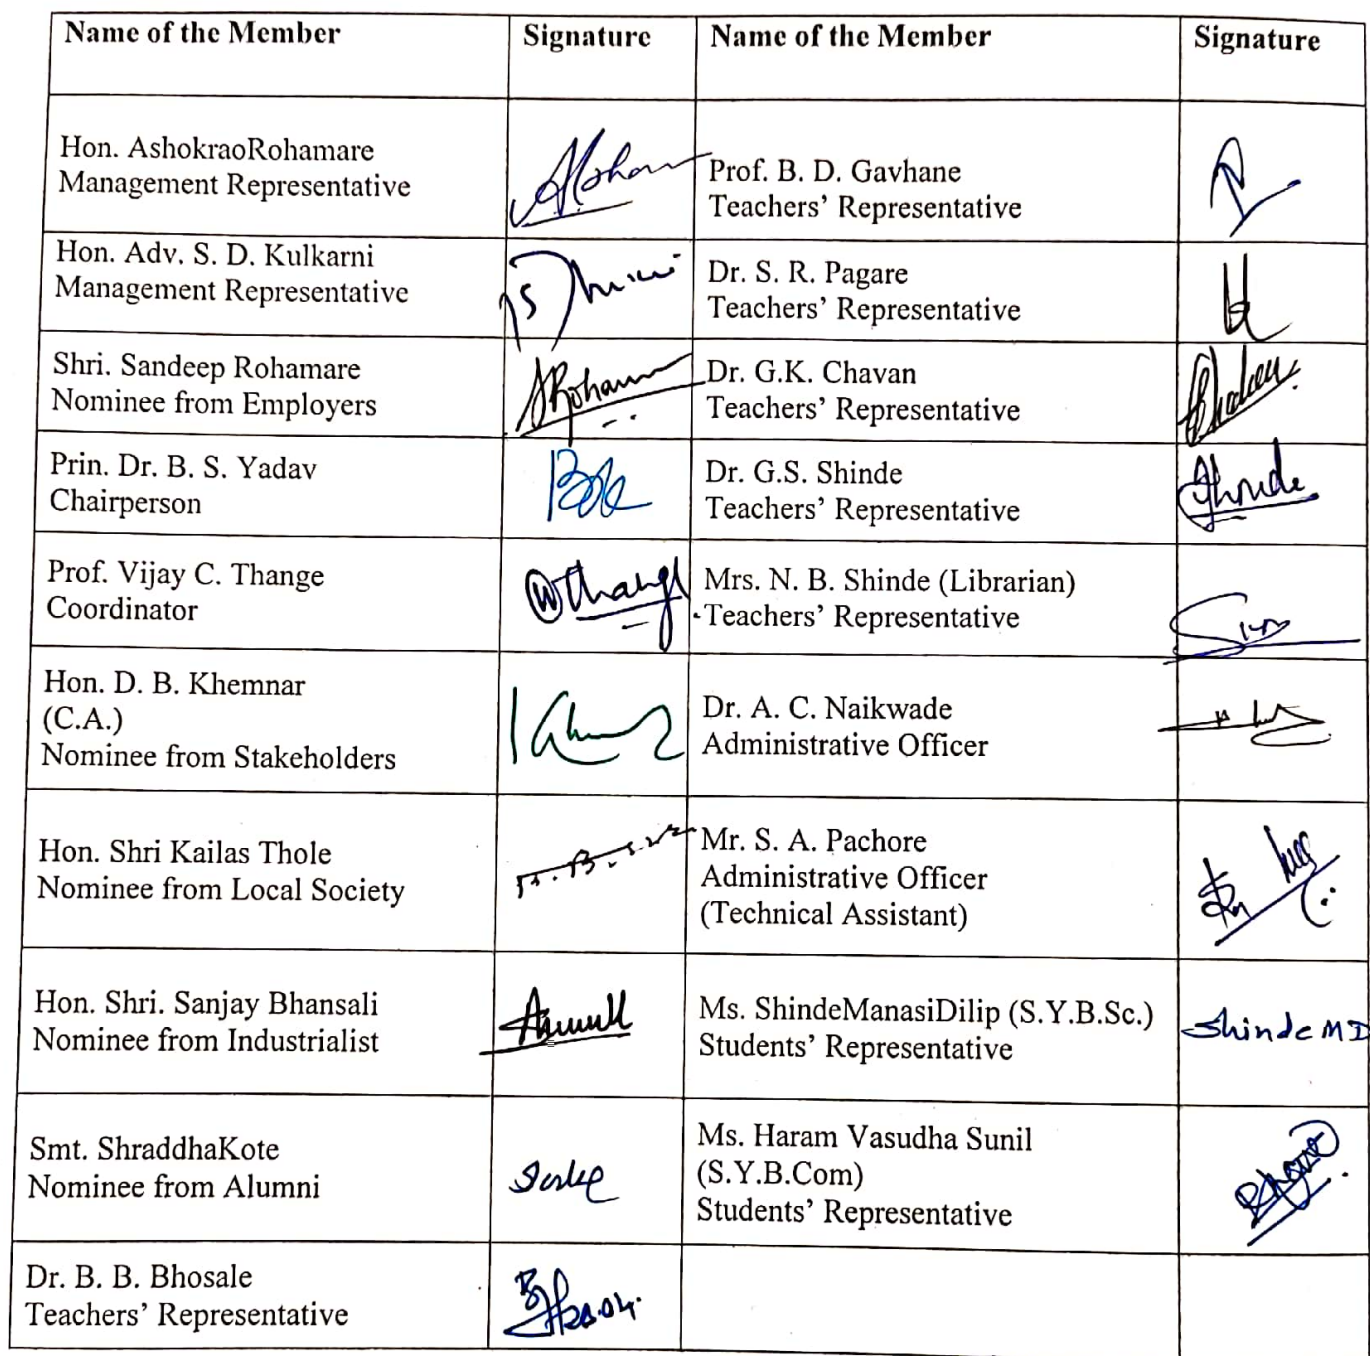 Name of the Member Signature Name of the Member Signature
Hon. AshokraoRohamare
Management Representative
Prof. B. D. Gavhane
Teachers' Representative
Hon. Adv. S. D. Kulkarni
Management Representative
Dr. S. R. Pagare
Teachers' Representative
Shri. Sandeep Rohamare
Nominee from Employers
Dr. G.K. Chavan
Teachers' Representative
Prin. Dr. B. S. Yadav
Chairperson
Dr. G.S. Shinde
Teachers' Representative
Prof. Vijay C. Thange
Coordinator
Mrs. N. B. Shinde (Librarian)
Teachers' Representative
Hon. D. B. Khemnar
(C.A.)
Nominee from Stakeholders
Dr. A. C. Naikwade
Administrative Officer
Hon. Shri Kailas Thole
Nominee from Local Society
Mr. S. A. Pachore
Administrative Officer
(Technical Assistant)
Hon. Shri. Sanjay Bhansali
Nominee from Industrialist
Ms. ShindeManasiDilip (S.Y.B.Sc.)
Students' Representative
Shinde MD
Smt. ShraddhaKote
Nominee from Alumni
Ms. Haram Vasudha Sunil
(S.Y.B.Com)
Students' Representative
Dr. B. B. Bhosale
Teachers' Representative